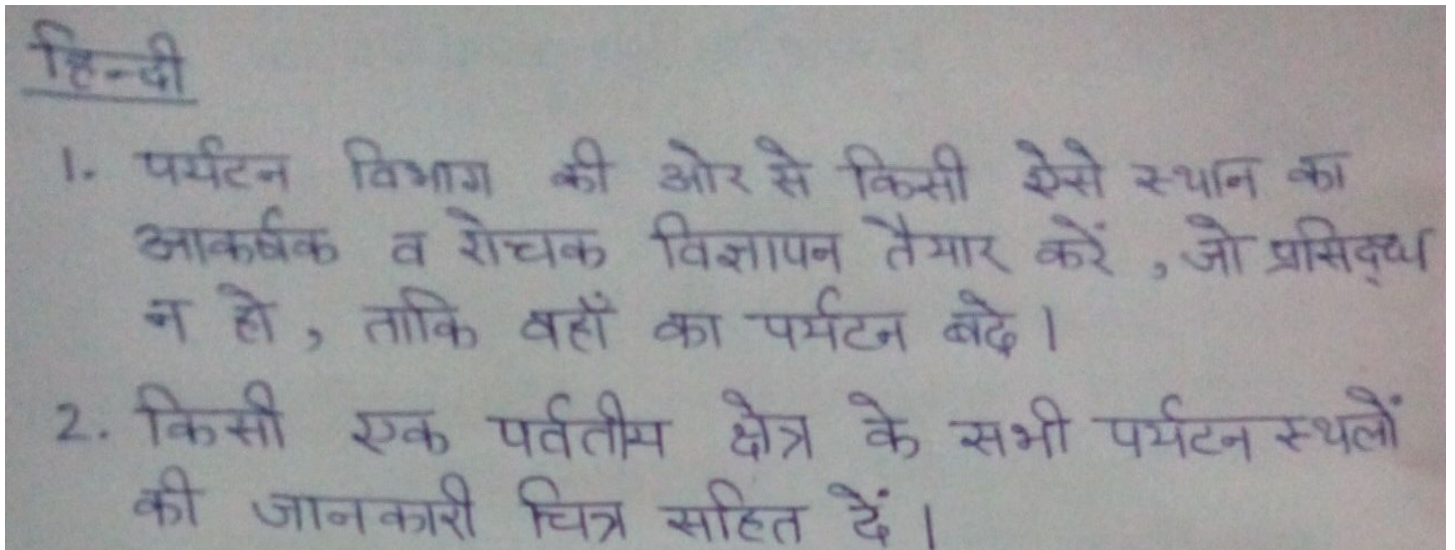 हिन्दी
1. पर्यटन विभाग की ओर से किसी ऐसे स्थान का
आकर्षक व रोचक विज्ञापन तैयार करें , जो प्रसिद्ध
न हो , ताकि वहाँ का पर्यटन बढे ।
2. किसी एक पर्वतीय क्षेत्र के सभी पर्यटन स्थलों
की जानकारी चित्र सहित दें ।